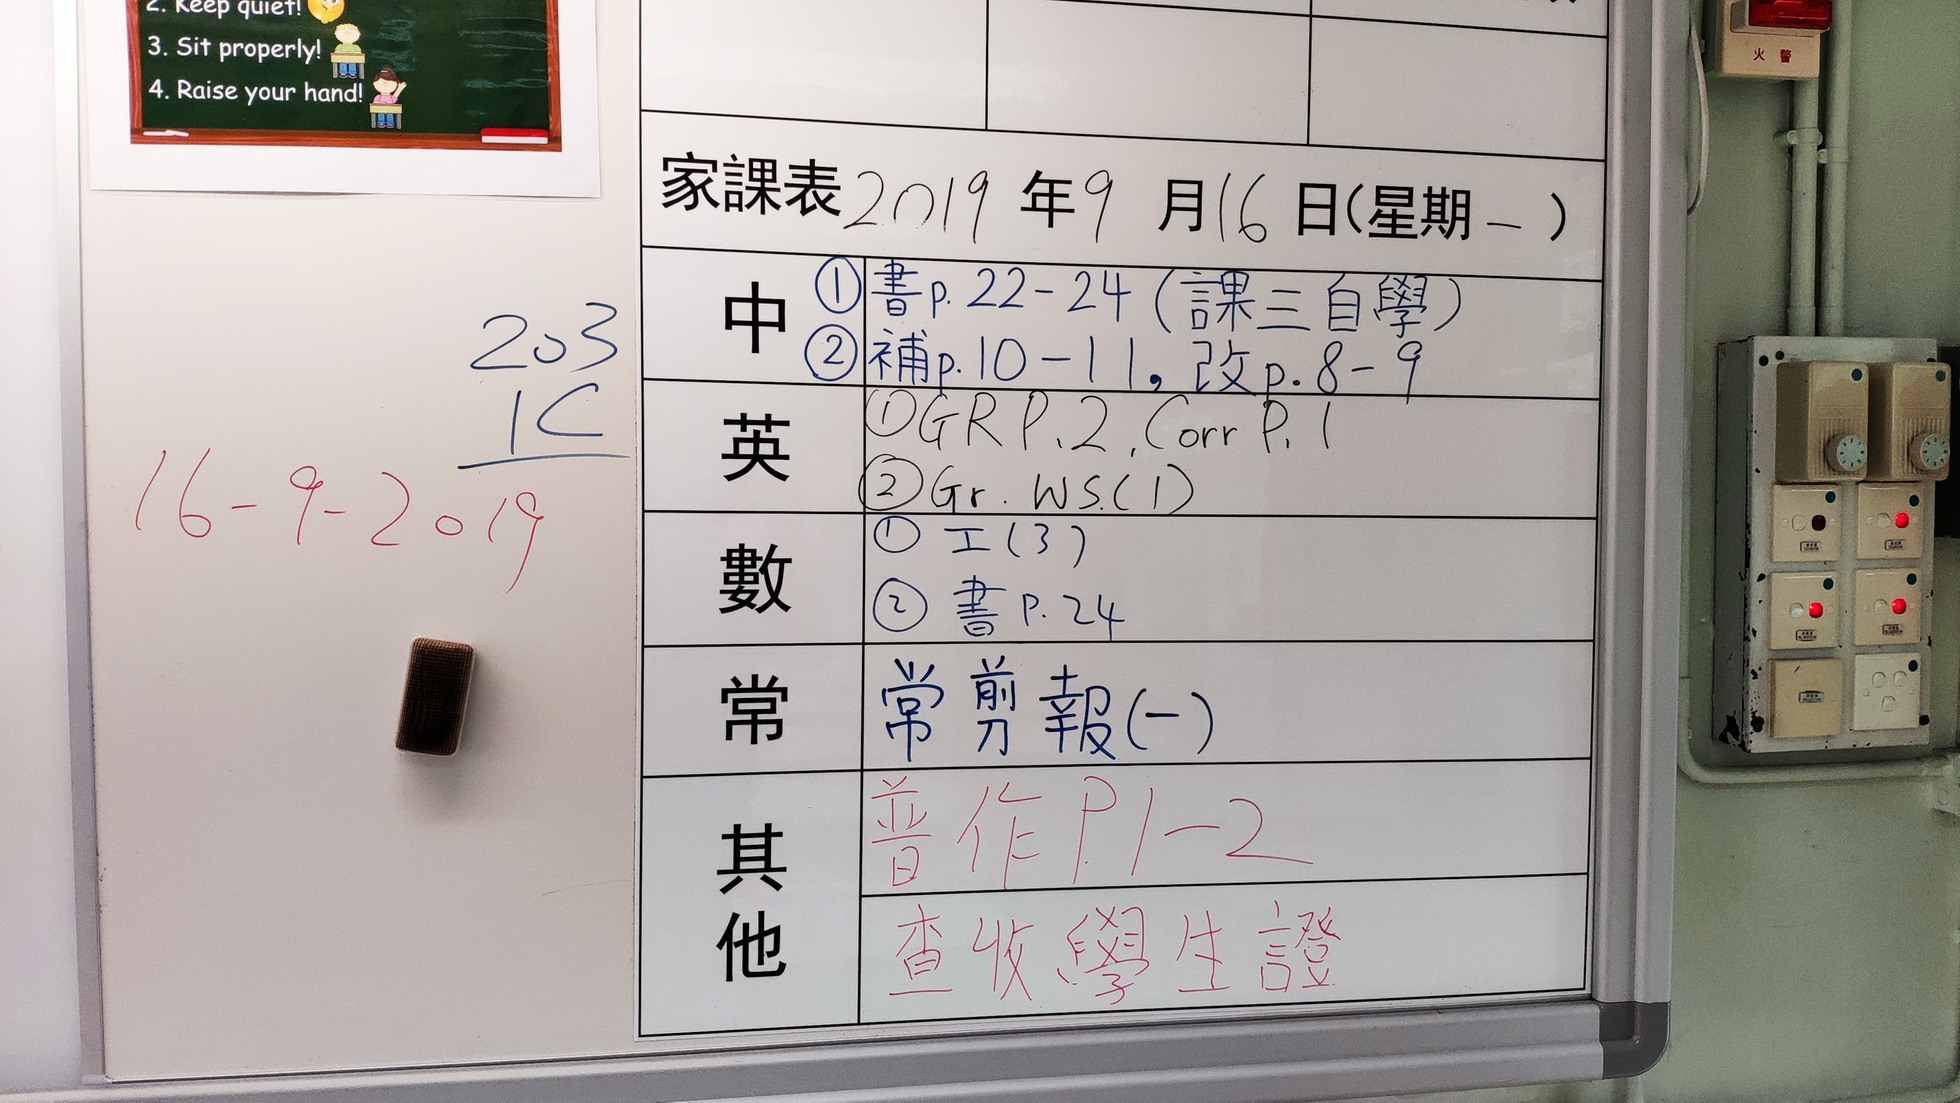 2. Keep quiet!
3. Sit properly!
4. Raise your hand!
火 警
家課表 2019 年 9 月 16 日(星期 一 )
中
① 書p.22-24 (課三自學)
② 補p.10-11, 改p.8-9
英
① GR P.2, Corr P.1
② Gr. WS.(1)
數
① 工(3)
② 書 P.24
常
常剪報(一)
其他
普作P.1-2
查收學生證
203
1C
16-9-2019